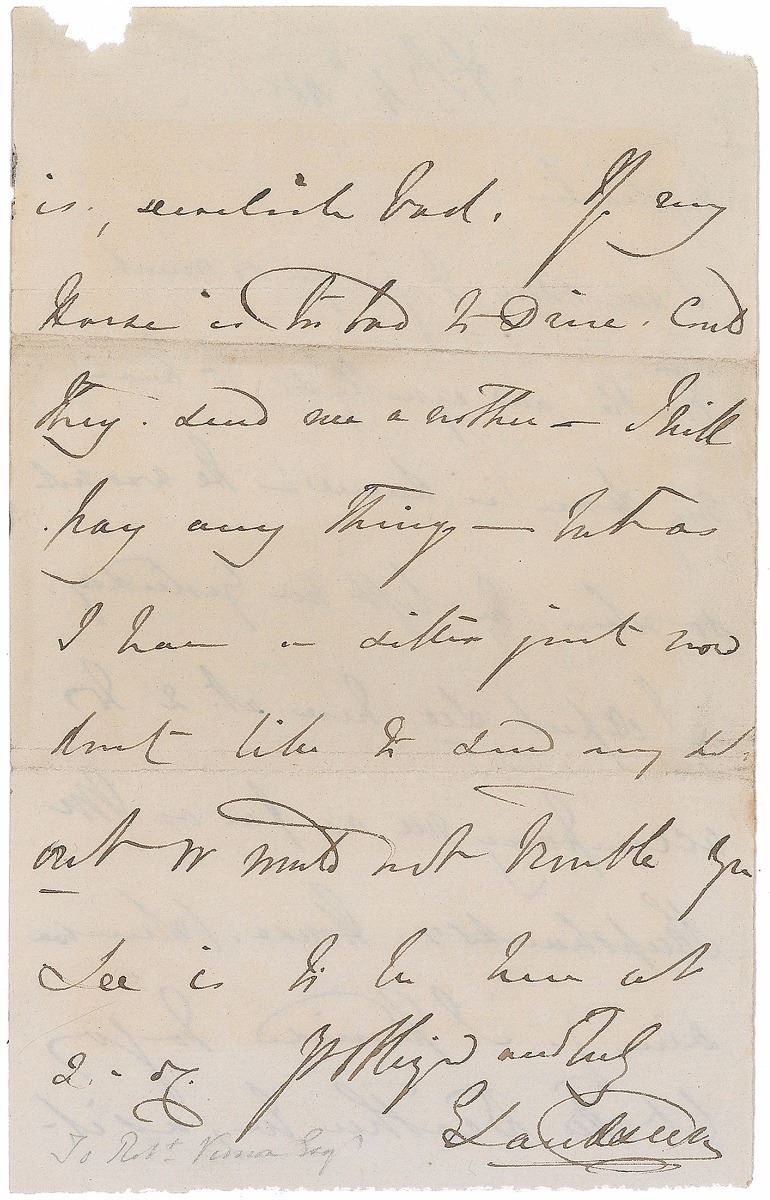 is, devilish bad. If my
Horse is too bad to Drive. Could
They. send me another — I will
pay any Thing — but as
I have a sitter just now
dont like to send my
out or would not trouble you
Lee is to be here at
2.
Yr obliged and Truly
E Landseer
To Robt Vernon Esqr